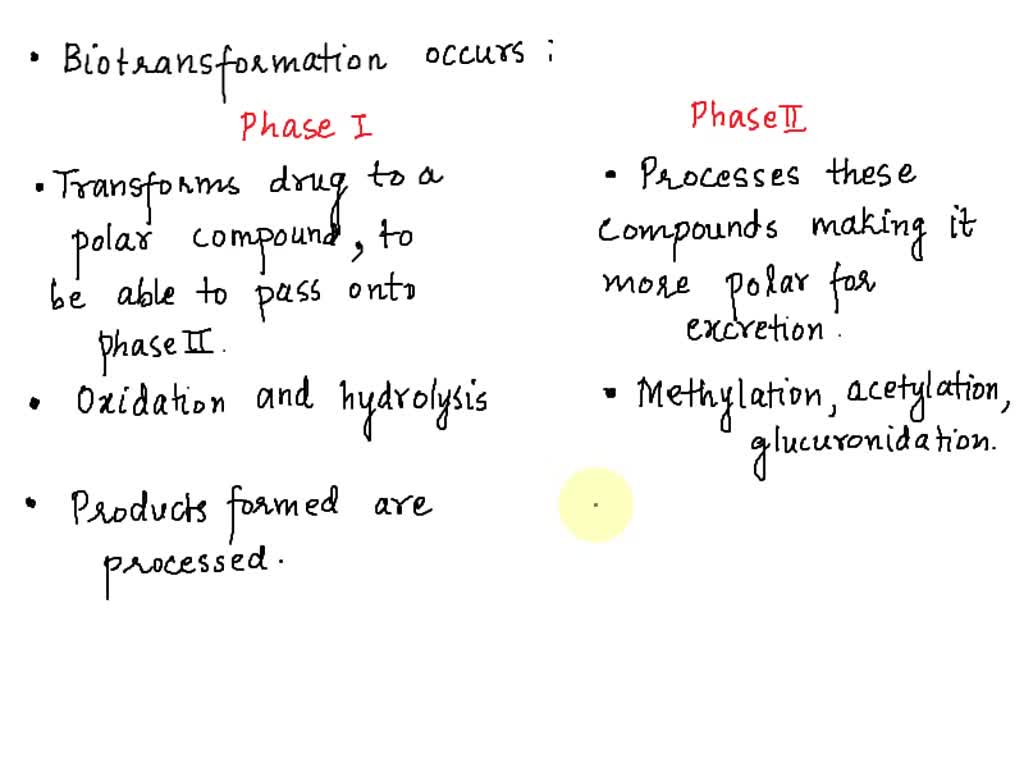 • Biotransformation occurs :
Phase I
• Transforms drug to a
polar compound, to
be able to pass onto
phase II.
• Oxidation and hydrolysis
• Products formed are
processed.
Phase II
• Processes these
compounds making it
more polar for
excretion.
• Methylation, acetylation,
glucuronidation.